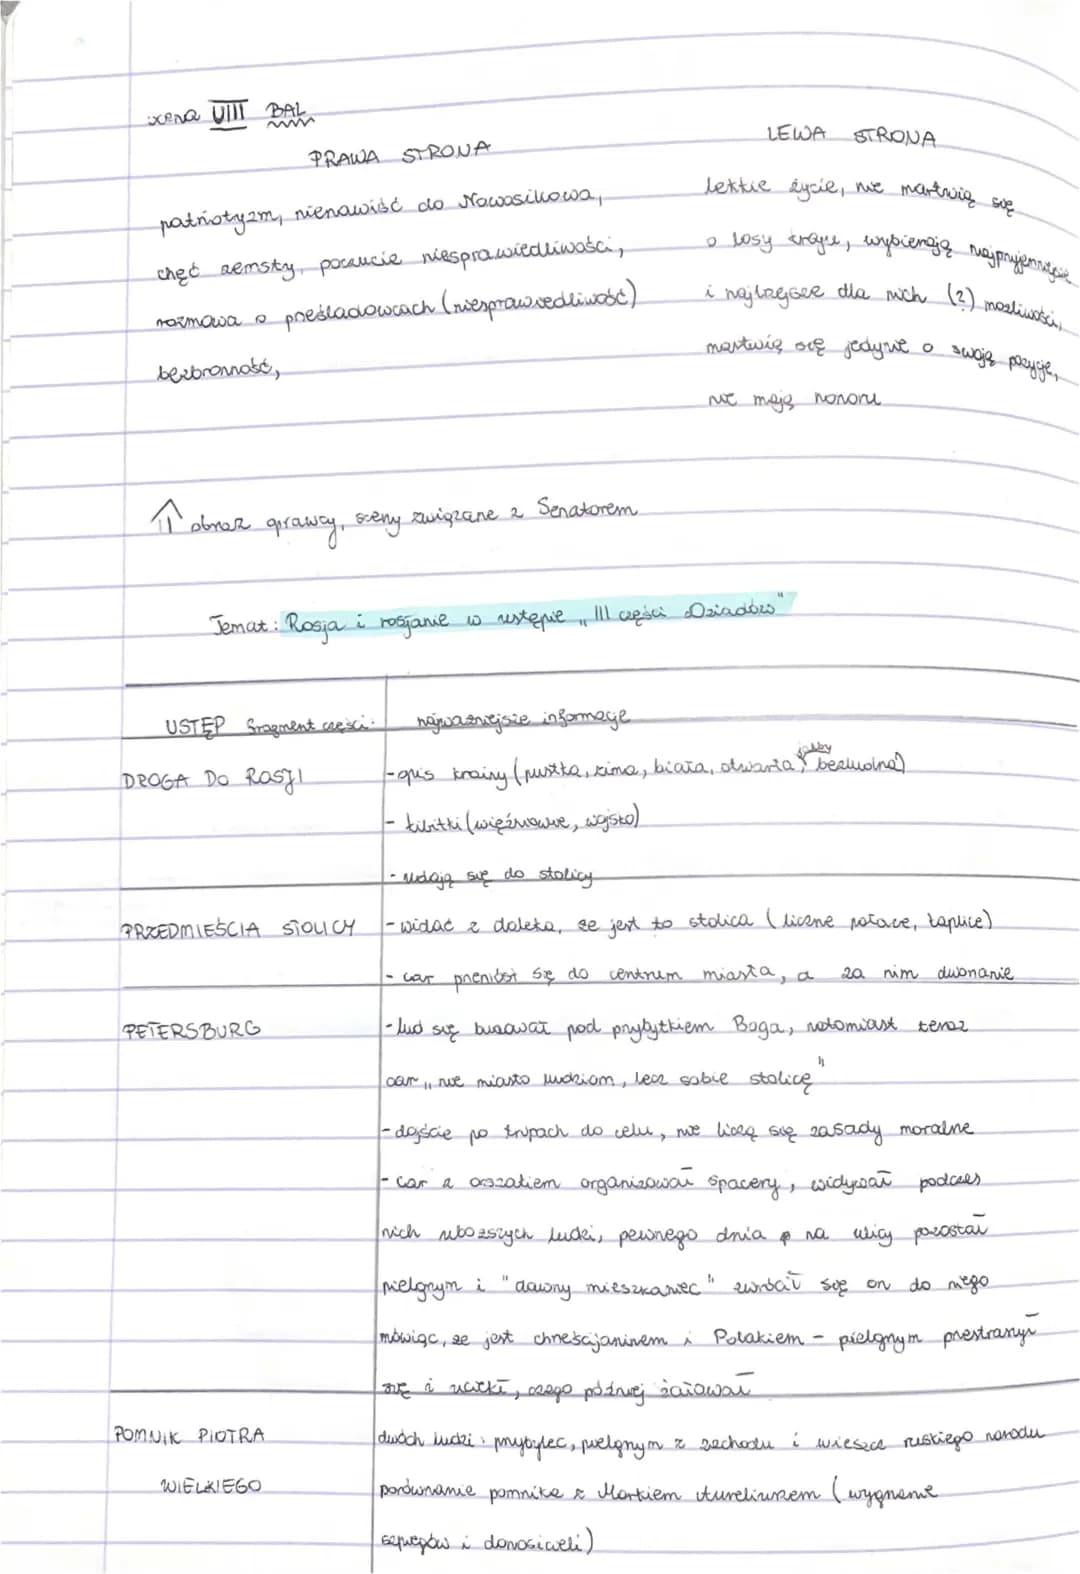 scena VIII BAL
PRAWA STRONA
patriotyzm, nienawiść do Nowosilcowa,
chęć zemsty, poczucie niesprawiedliwości,
rozmowa o prześladowcach (niesprawiedliwość)
bezbronność,
LEWA STRONA
lekkie życie, nie martwią się
o losy kraju, wybierają najprzyjemniejsze
i najlżejsze dla nich (?) możliwości,
martwią się jedynie o swoją pozycję,
nie mają honoru
⇑ obraz oprawcy, sceny związane z Senatorem
Temat: Rosja i rosjanie w ustępie „III części Dziadów"
USTĘP fragment części:
najważniejsze informacje
DROGA DO ROSJI
- opis krainy (pustka, zima, biała, otwarta, jakby bezludna)
- kibitki (więźniowie, wojsko)
- udają się do stolicy
PRZEDMIEŚCIA STOLICY
- widać z daleka, że jest to stolica (liczne pałace, kaplice)
- car przeniósł się do centrum miasta, a za nim dworzanie
PETERSBURG
- lud się budował pod przybytkiem Boga, natomiast teraz
car „nie miasto ludziom, lecz sobie stolicę"
- dojście po trupach do celu, nie liczą się zasady moralne
- car z orszakiem organizował spacery, widywał podczas
nich uboższych ludzi, pewnego dnia na ulicy pozostał
pielgrzym i "dawny mieszkaniec" zwrócił się on do niego
mówiąc, że jest chrześcijaninem i Polakiem - pielgrzym przestraszył
się i uciekł, czego później żałował
POMNIK PIOTRA
WIELKIEGO
dwóch ludzi: przybylec, pielgrzym z zachodu i wieszcz ruskiego narodu
porównanie pomnika z Markiem Aureliuszem (wygnanie
szpiegów i donosicieli)